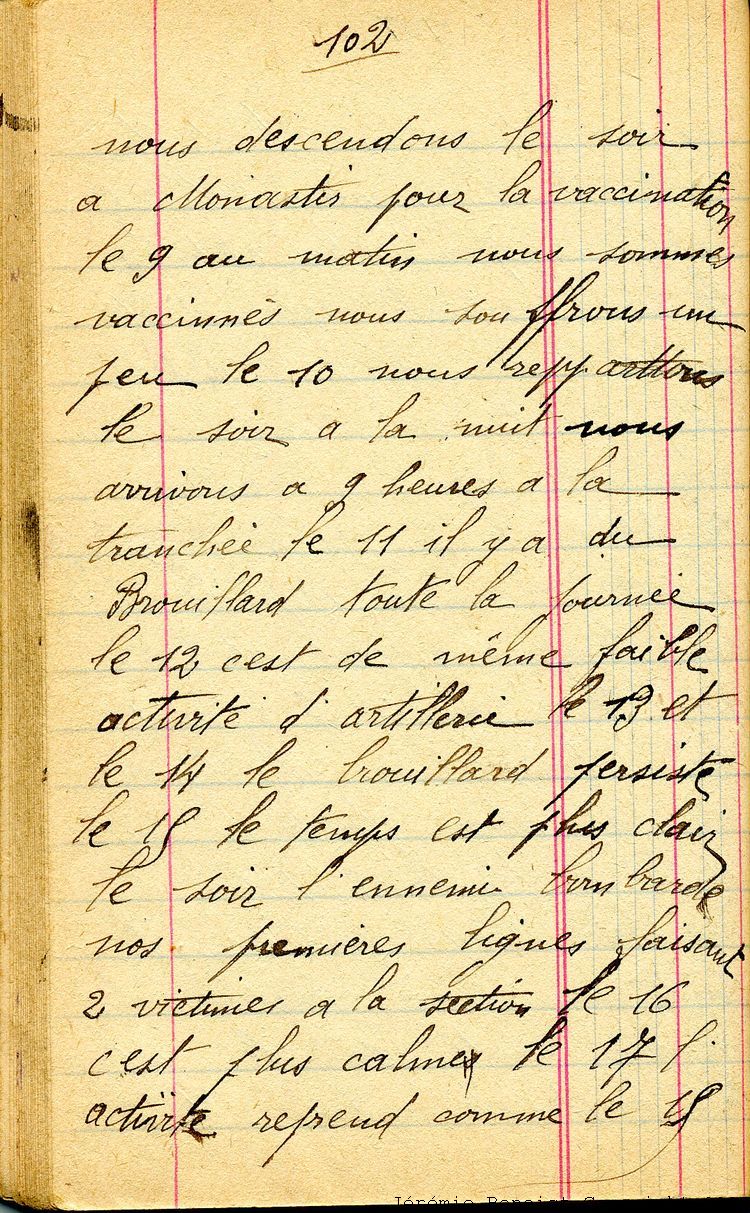 102
nous descendons le soir
a Monastis pour la vaccination
le 9 au matin nous sommes
vaccinnés nous souffrons un
peu le 10 nous repparttons
le soir a la nuit nous
arrivons a 9 heures a la
tranchée le 11 il y a du
Brouillard toute la journée
le 12 cest de même faible
activité d'artillerie le 13 et
le 14 le brouillard persiste
le 15 le temps est plus clair
le soir l'ennemi bombarde
nos premières lignes faisant
2 victimes a la section le 16
cest plus calme le 17 l'
activité reprend comme le 15